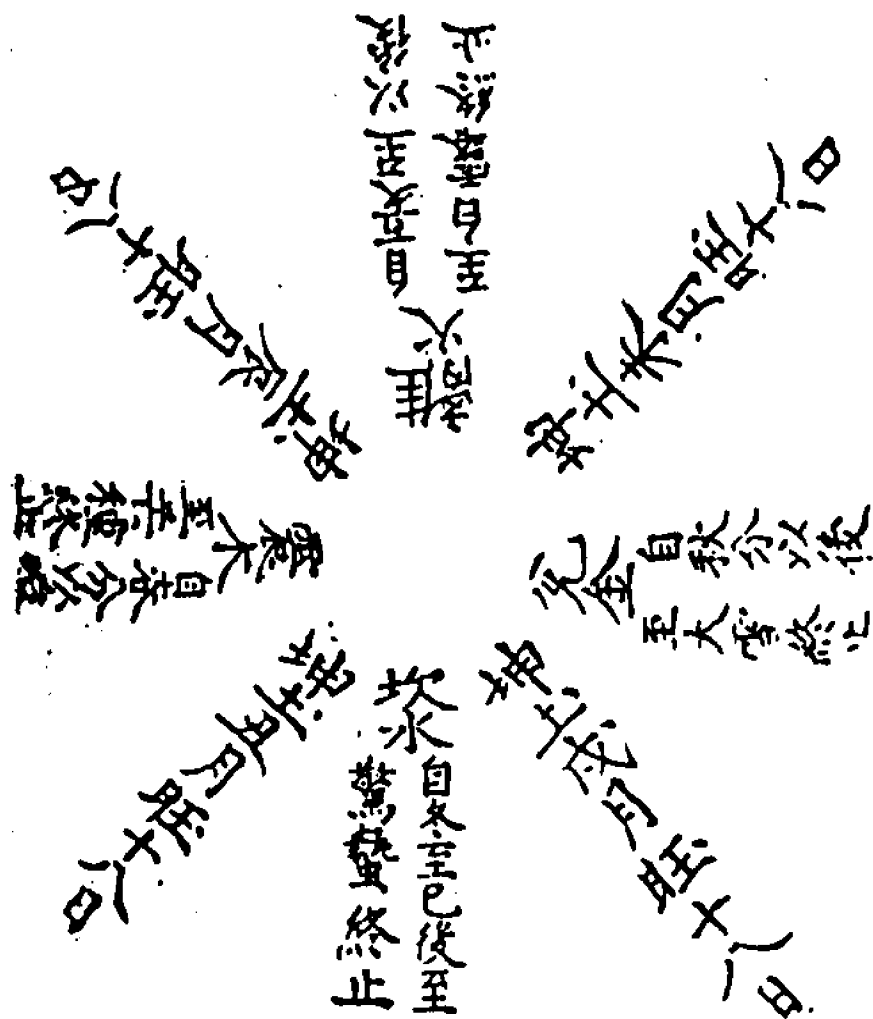 離火
自夏至以後
至白露終止
坤土未月旺十八日
兌金
自秋分以後
至大雪終止
坤土戌月旺十八日
坎水
自冬至已後至
驚蟄終止
坤土丑月旺十八日
震木
自春分以後
至芒種終止
坤土辰月旺十八日